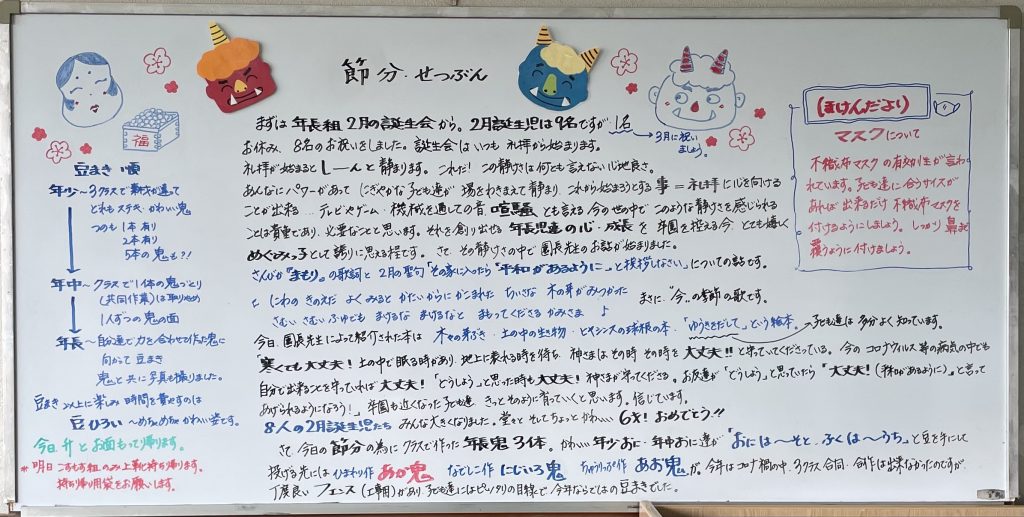 節分・せつぶん
福
豆まき順
年少〜3クラスで鬼が違って
どれもステキ・かわいい鬼
つのも1本有り
2本有り
5本の鬼も?!
年中〜クラスで1体の鬼づくり
(共同作業)は取りやめ
1人ずつの鬼の面
年長〜自分達で力を合わせて作った鬼に
向かって豆まき
鬼と共に写真も撮りました。
豆まき以上に楽しみ時間を費やすのは
豆ひろい〜めちゃめちゃかわいい姿です。
今日升とお面もって帰ります。
*明日こすもす組のみ上靴持ち帰ります。
持ち帰り用袋をお願いします。
まずは年長組2月の誕生会から。2月誕生児は9名ですが1名
→3月に祝い
ましょう。
お休み、8名のお祝いをしました。誕生会はいつも礼拝から始まります。
礼拝が始まるとしーんと静まります。これだ!この静けさは何とも言えない心地良さ。
あんなにパワーがあってにぎやかな子ども達が場をわきまえて静まり、これから始まろうとする事=礼拝に心を向ける
ことが出来…テレビやゲーム・機械を通しての音、喧騒とも言える今の世の中でこのような静けさを感じられる
ことは貴重であり、必要なことと思います。それを創り出せる年長児達の心・成長を卒園を控える今、とても嬉しく
めぐみっ子として誇りに思える程です。さて、その静けさの中で園長先生のお話が始まりました。
さんびか『まもり』の歌詞と2月の聖句「その家に入ったら『平和があるように』と挨拶しなさい」についての話です。
にわの きのえだ よくみると かたいからに かこまれた ちいさな 木の芽が みつかった
さむい さむい ふゆでも まけるな まけるなと まもってくださる かみさま ♪
まさに"今"の季節の歌です。
今日、園長先生によって紹介された本は 木々の芽ぶき・土の中の生物・ヒヤシンスの球根の本・「ゆうきをだして」という絵本。→子ども達は多分よく知っています。
「寒くても大丈夫!土の中で眠る時があり、地上に表れる時を待ち、神さまはその時その時を大丈夫!!と守っていてくださっている。今のコロナウィルス等の病気の中でも
自分で出来ることを守っていれば大丈夫!「どうしよう」と思った時も大丈夫!神さまが守ってくださる。お友達が「どうしよう」と思っていたら"大丈夫!(平和があるように)"と言って
あげられるようになろう!」卒園も近くなった子ども達、きっとそのように育っていくと思います。信じています。
8人の2月誕生児たち みんな大きくなりました。堂々とそしてちょっとかわいい 6才!おめでとう!!
さて、今日の節分の為にクラスで作った年長鬼3体。かわいい年少おに・年中おに達が「おにはーそと、ふくはーうち」と豆を手にして
投げる先には ひまわり作 あか鬼 なでしこ作 にじいろ鬼 ちゅうりっぷ作 あお鬼が。今年はコロナ禍の中、3クラス合同・合作は出来なかったのですが
丁度良いフェンス(工事用)があり、子ども達にはピッタリの目標で今年ならではの豆まきでした。
(ほけんだより)
マスクについて
不織布マスクの有効性が言わ
れています。子ども達に合うサイズが
あれば出来るだけ不織布マスクを
付けるようにしましょう。しっかり鼻まで
覆うように付けましょう。